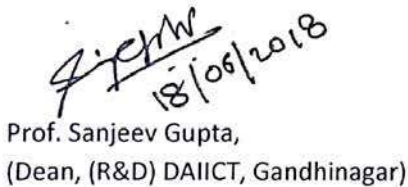 18/06/2018
Prof. Sanjeev Gupta,
(Dean, (R&D) DAIICT, Gandhinagar)